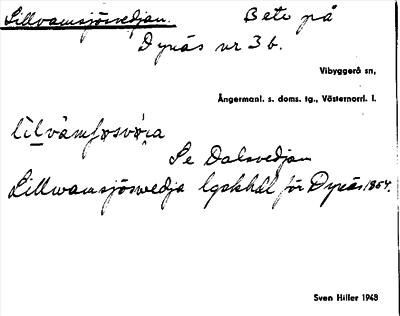 Lillvamsjösvedjan. Bete på
Dynäs nr 3 b.
Vibyggerå sn,
Ångermanl. s. doms. tg., Västernorrl. l.
Se Dalsvedjan
Lillwamsjöswedja lgskhål för Dynäs 1864.
Sven Hiller 1948